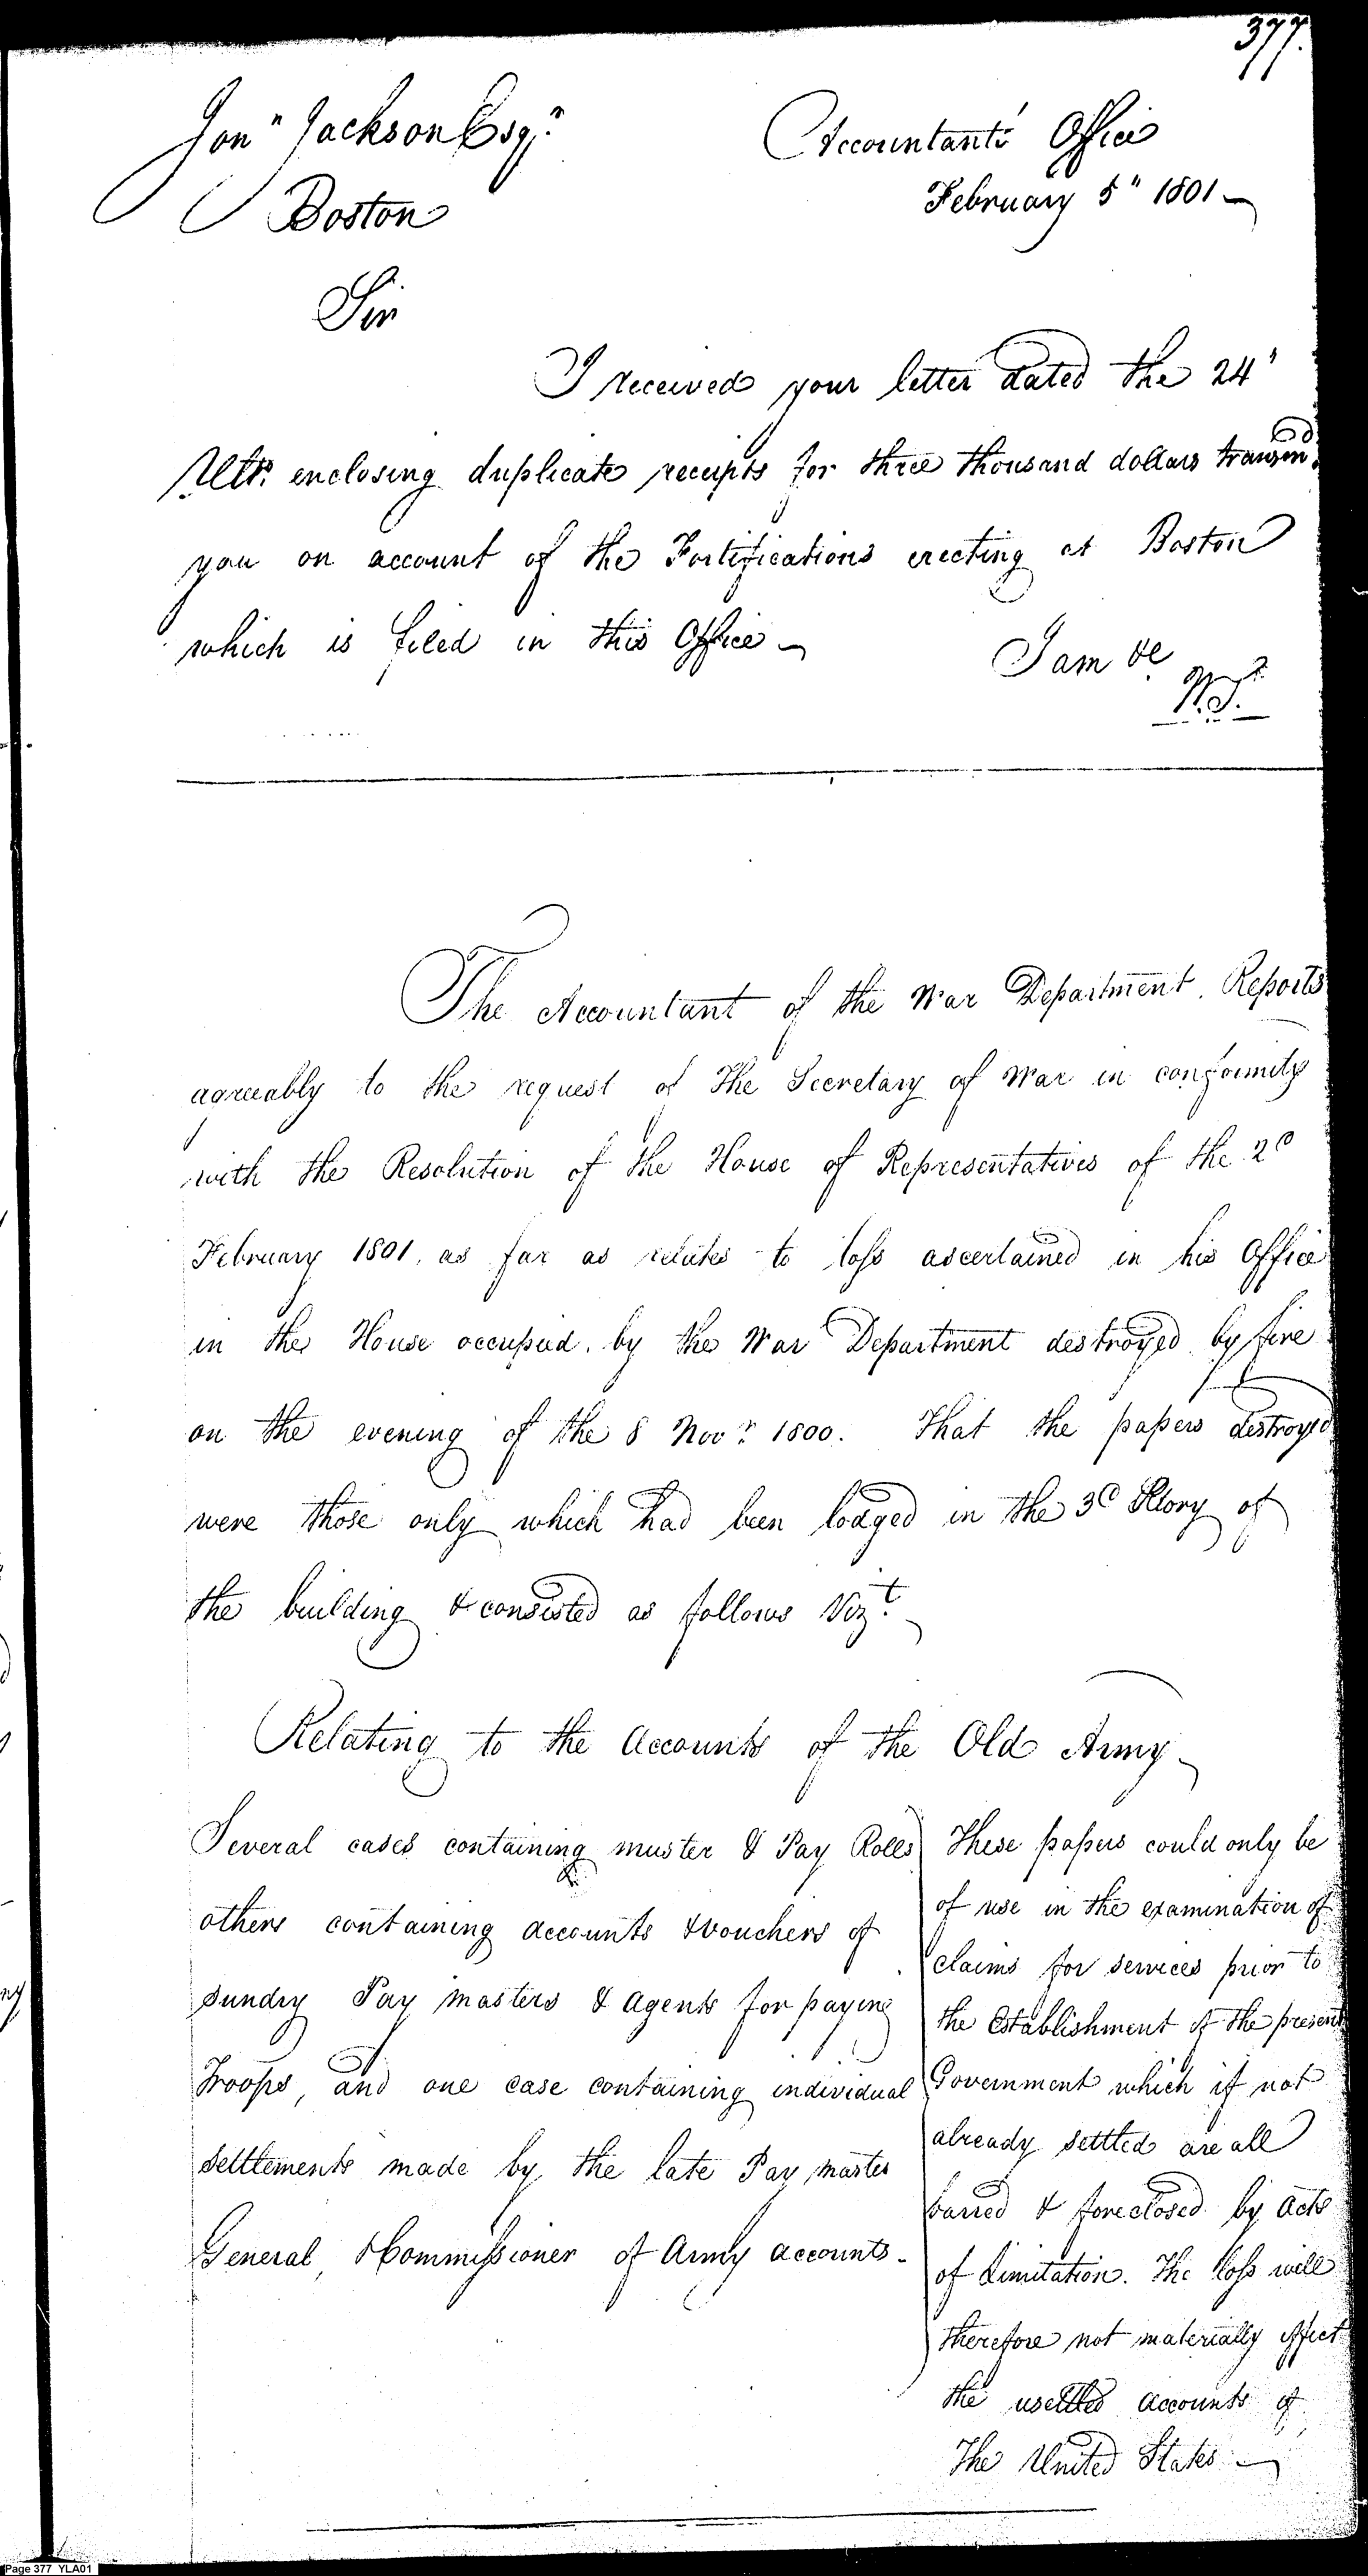 377.
Jonⁿ Jackson Esqʳ
Accountant's Office
Boston
February 5" 1801
Sir
I received your letter dated the 24"
Ultº enclosing duplicate receipts for three thousand dollars
you on account of the Fortifications erecting at Boston
which is filed in this Office
I am &c
The Accountant of the War Department Reports
agreeably to the request of The Secretary of War in conformity
with the Resolution of the House of Representatives of the 2d
February 1801. as far as relates to loss ascertained in his Office
in the House occupied by the War Department destroyed by fire
on the evening of the 8 Novʳ 1800. That the papers destroyed
were those only which had been lodged in the 3d Story of
the building & consisted as follows Vizt
Relating to the Accounts of the Old Army
Several cases containing muster & Pay Rolls
others containing accounts & vouchers of
sundry Pay masters & Agents for paying
Troops, and one case containing individual
settlements made by the late Pay master
General, & Commissioner of Army accounts
These papers could only be
of use in the examination of
claims for services prior to
the Establishment of the present
Government which if not
already settled are all
barred & foreclosed by acts
of Limitation. The loss will
therefore not materially effect
the usettled accounts of
The United States
Page 377 YLA01